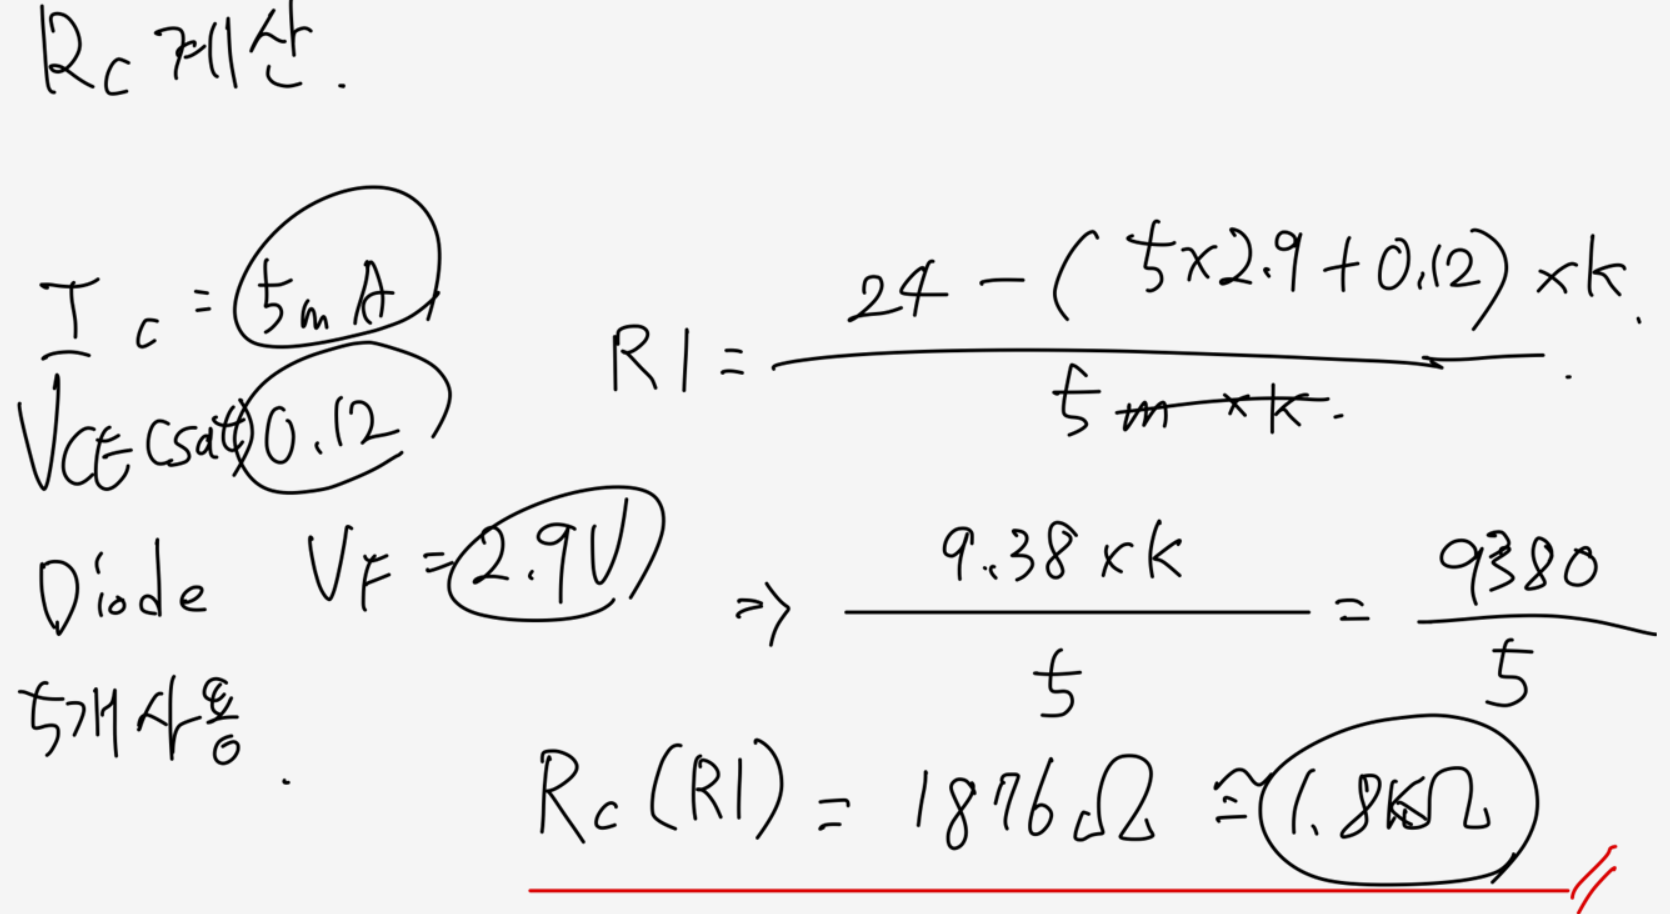 Rc 계산.
Ic = 5mA
VCE(sat) 0.12
Diode VF = 2.9V
5개 사용.
R1 = 24 - (5×2.9+0.12) ×k.
5 m ×k.
⇒ 9.38 ×k / 5 = 9380 / 5
Rc (R1) = 1876Ω ≅ 1.8kΩ